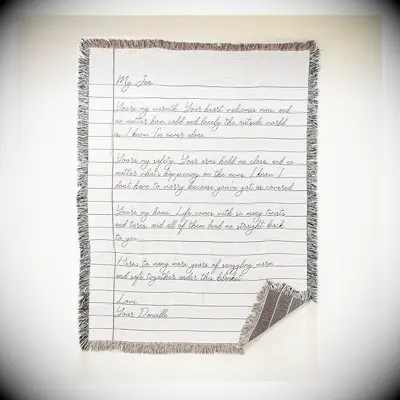 My Joe,
You're my warmth. Your heart welcomes mine, and
no matter how cold and lonely the outside world
is, I know I'm never alone.
You're my safety. Your arms hold me close, and no
matter what's happening on the news, I know I
don't have to worry because you've got us covered.
You're my home. Life comes with so many twists
and turns, and all of them lead me straight back
to you.
Here's to many more years of snuggling warm
and safe together under this blanket.
Love,
Your Danielle